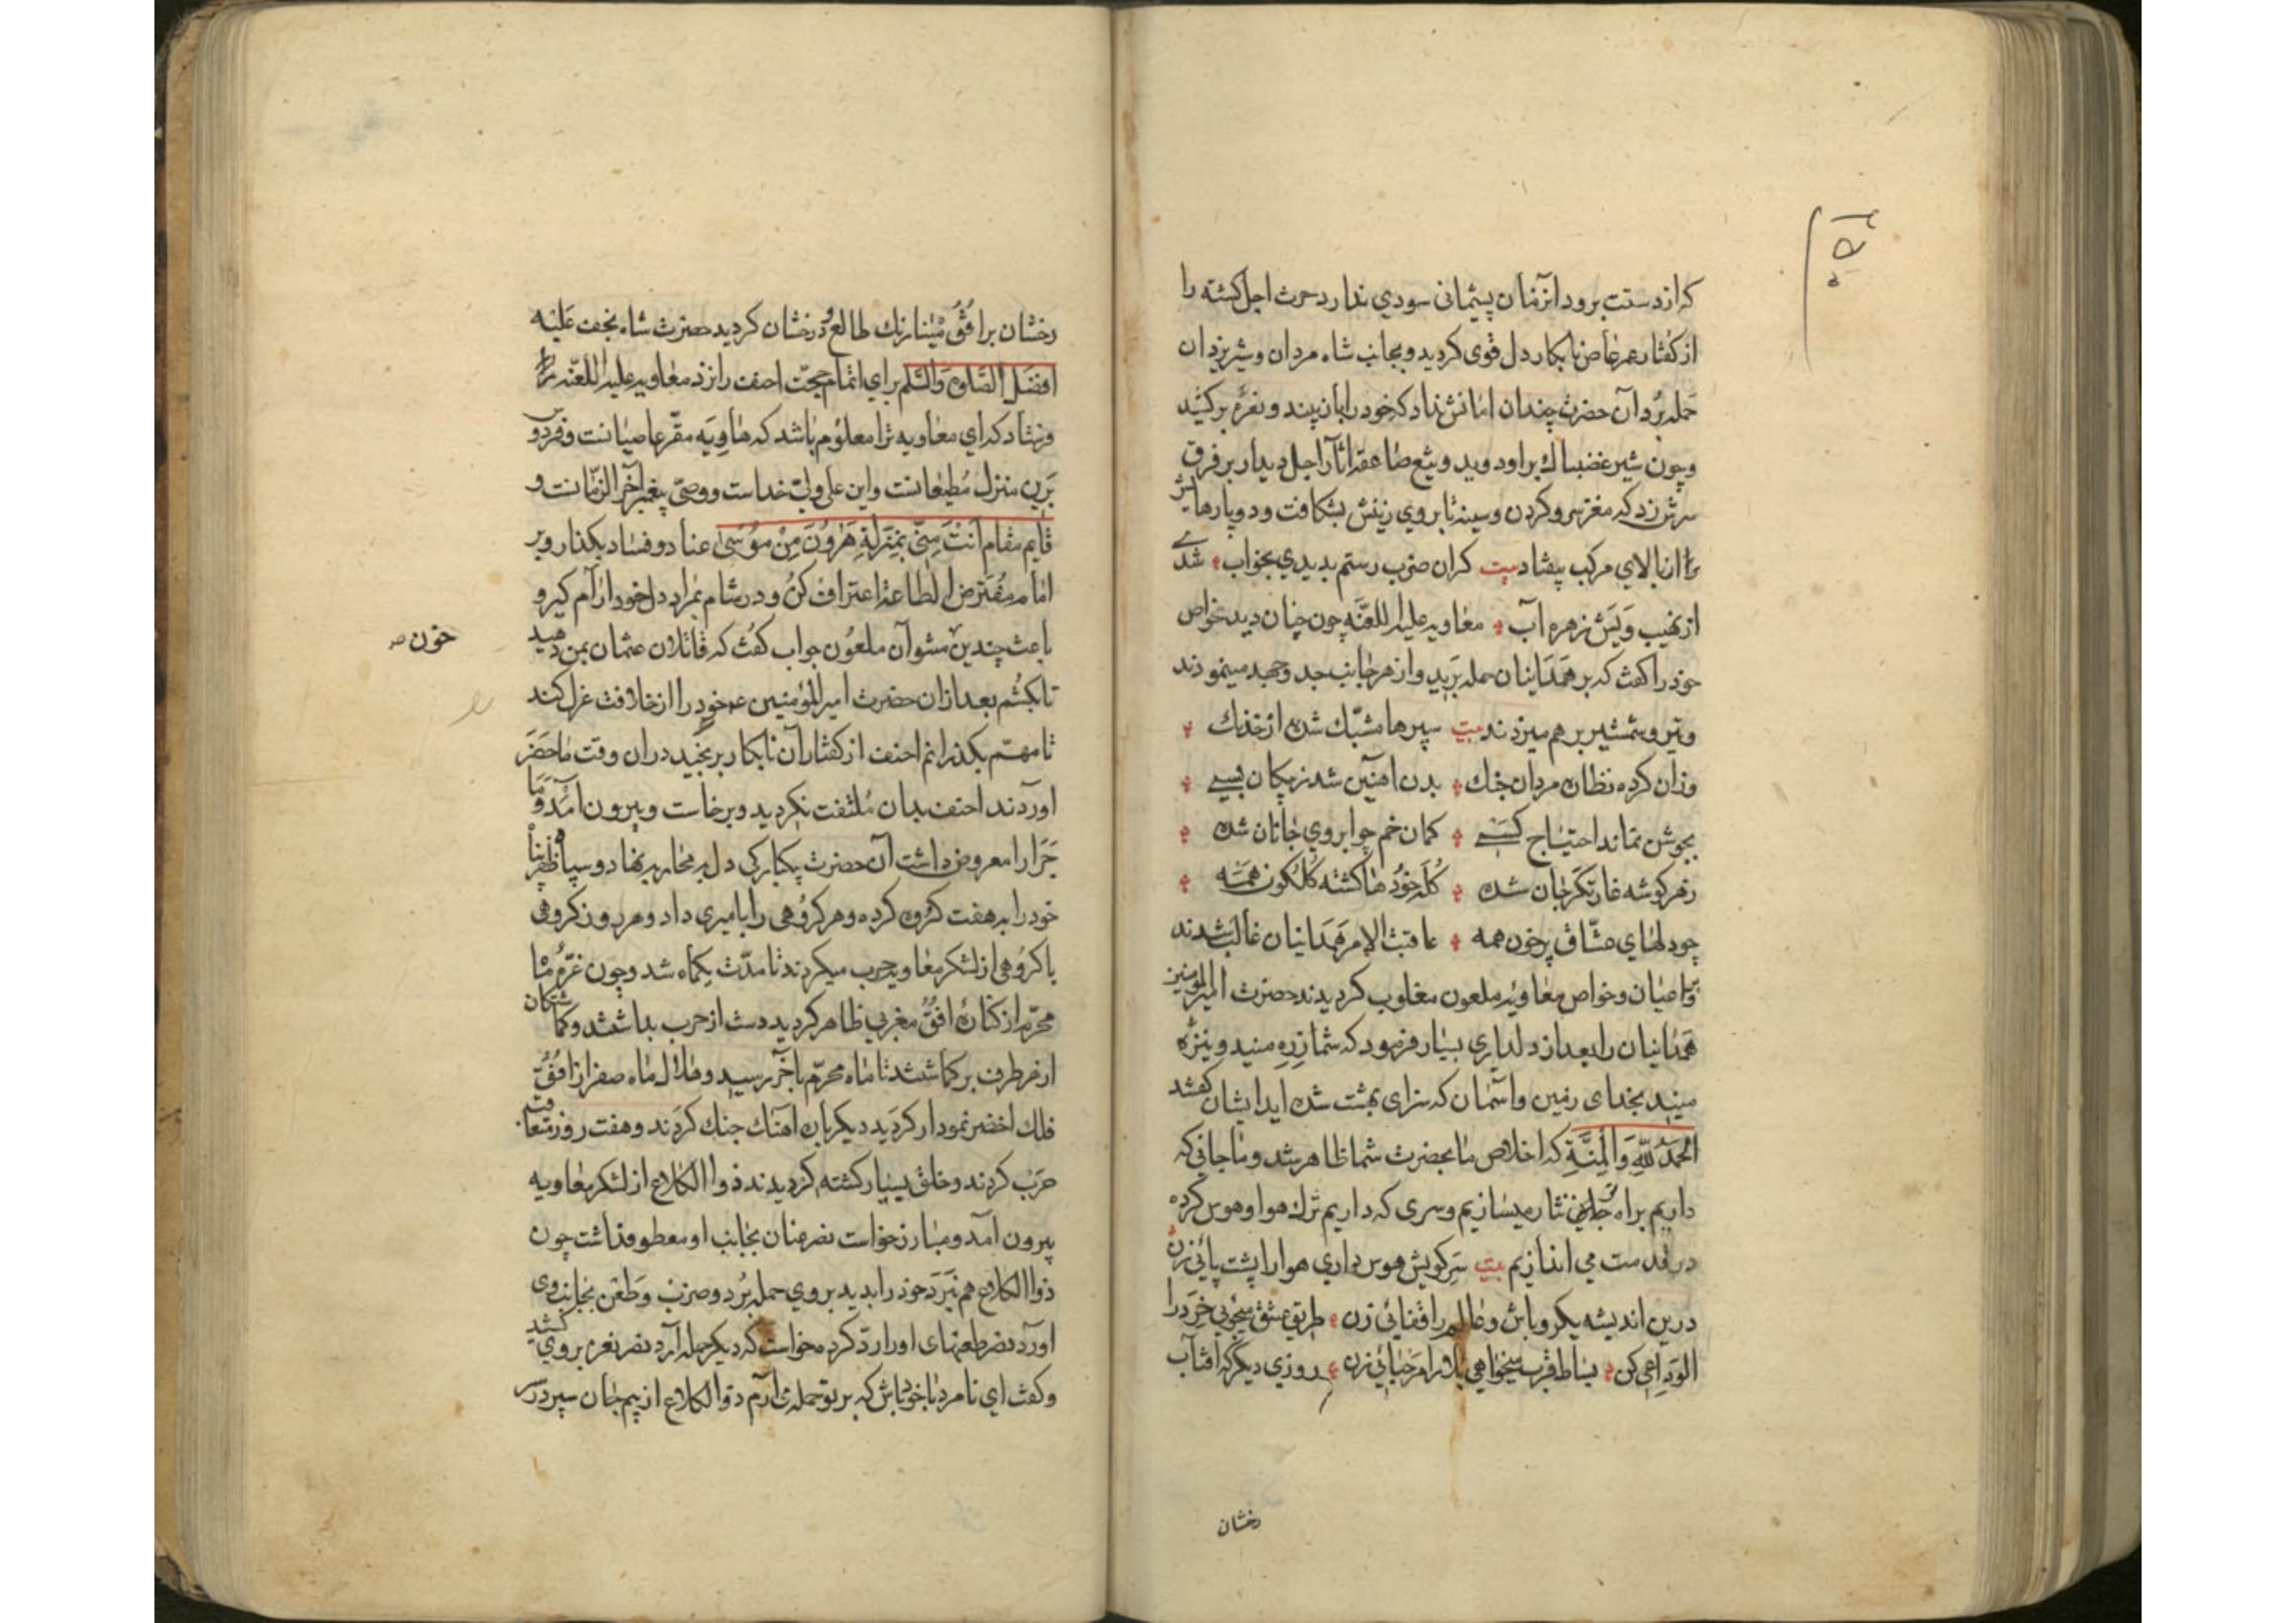 که از دست برود انزمان پشیمانی سودی ندارد حرث اجل کشته را
از کفتار عمر عاص نابکار دل قوی کردید و بجانب شاه مردان و شیر یزدان
حمله برد آن حضرت چندان امانش نداد که خود را بان بیند و نعرۀ برکشید
و چون شیر غضبناك بر او دوید و تیغ صاعقه اثار اجل دیدار بر فرق
سرش زد که مغز سر و کردن و سینه تا بروی زینش بشکافت و دو پارها یش
را از بالای مرکب بیفتاد بیت کران ضرب رستم بدیدی بخواب شدی
از نهیب ویش زهره آب معاویه علیه اللعنه چون چنان دید بخواص
خود را کفت که بر همدانیان حمله برید و از هر جانب جد و جهد مینمودند
و تیر و شمشیر بر هم میزدند بیت سپرها مشبّك شده از خدنك
وزان کرده نظاره مردان جنك بدن اهنین شد ز پیکان بسے
بجوشن نماند احتیاج کسے کمان خم چو ابروی جانان شده
ز هر کوشه غارتکر جان شده کله خودها کشته کلکون همه
چو دلهای عشّاق پر خون همه عاقبت الامر همدانیان غالب شدند
و عاصیان و خواص معاویه ملعون مغلوب کردیدند حضرت امیر المومنین
همدانیان را بعد از دلداری بسیار فرمود که شما زره منید و نیزۀ
منید بخدای زمین و آسمان که سزای بهشت شده اید ایشان کفتند
الحمد لله والمنة که اخلاص ما بحضرت شما ظاهر شد و ما جانی که
داریم براه جانان نثار میسازیم و سری که داریم ترك هوا و هوس کرده
در قدمت می اندازیم بیت سر کویش هوس داری هوا را پشت پائی زن
درین اندیشه یکرو باش و عالم را قفائی زن طریق عشق میجوئی خرد را
الوداعی کن بساط قرب میخواهی بلا را مرحبائی زن روزی دیگر که افتاب
رخشان
رخشان بر افق مینا رنك طالع و درخشان کردید حضرت شاه نجف علیه
افضل الصلوة والسّلم برای اتمام حجّت احنف را نزد معاویه علیه اللعنه
فرستاد که ای معاویه ترا معلوم باشد که هاویه مقرّ عاصیانست و فردوس
برین منزل مطیعانست و این علی ولیّ خداست و وصیّ پیغمبر آخر الزمانست و
قایم مقام انت منّی بمنزلة هرون من موسی عناد و فساد بکذار و بر
امام مفترض الطاعة اعتراف کن و در شام بمراد دل خود ارام کیر و
باعث چندین مشو آن ملعون جواب کفت که قاتلان عثمان بمن دهید
خون صه
تا بکشم بعد از ان حضرت امیر المؤمنین عه خود را از خلافت عزل کند
تا مهم بکذرانم احنف از کفتار آن نابکار برنجید دران وقت ماحضر
اوردند احنف بدان ملتفت نکردید و برخاست و بیرون آمد و ما
جرا را معروض داشت آن حضرت یکبارکی دل بر محاربه نهاد و سپاه ظفر پناه
خود را به هفت کروه کرده و هر کروهی را بامیری داد و هر روز کروهی
با کروهی از لشکر معاویه حرب میکردند تا مدّت یکماه شد و چون غرّه ماه
محرّم از کنارۀ افق مغربی ظاهر کردید دست از حرب بداشتند و کماشتکان
از هر طرف بر کماشتند تا ماه محرّم باخر رسید و هلال ماه صفر از افق
فلك اخضر نمودار کردید دیکرباره اهنك جنك کردند و هفت روز متعاقب
حرب کردند و خلق بسیار کشته کردیدند ذوالکلاع از لشکر معاویه
بیرون آمد و مبارز خواست نضر عنان بجانب او معطوف داشت چون
ذوالکلاع هم نبرد خود را بدید بروی حمله برد و ضرب و طعن بجانب وی
اورد نضر طعنهای او را ردّ کرده خواست که دیگر حمله آرد نضر نعره بروی کشید
و کفت ای نامرد با خود باش که بر تو حمله می آرم ذوالکلاع از بیم جان سپر در سر